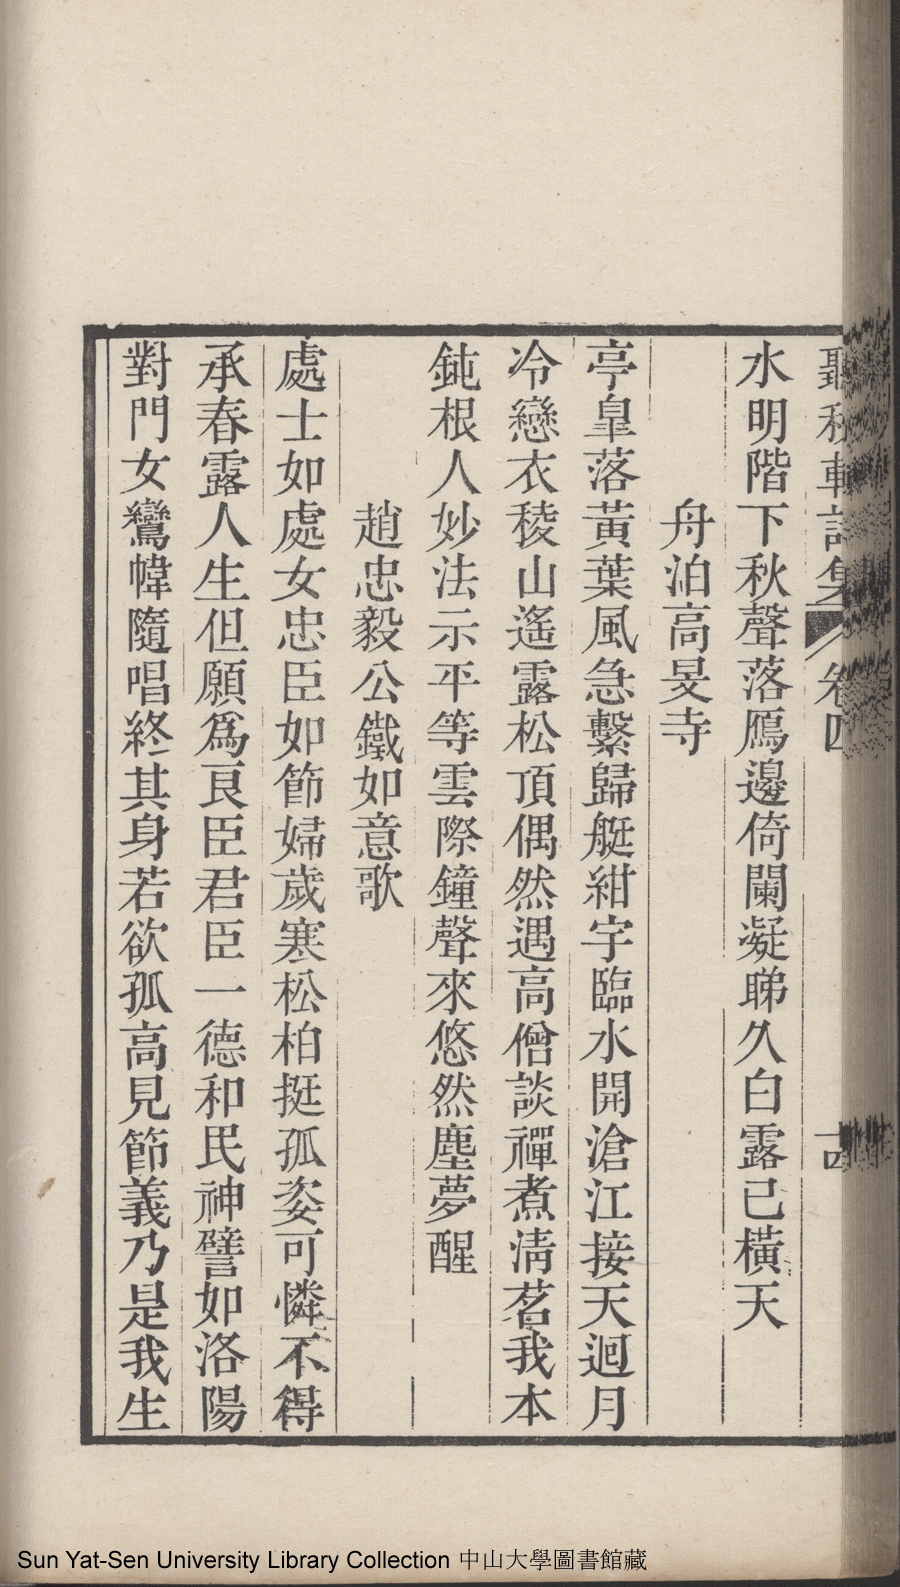 聽秋軒詩集 卷四 十四
水明階下秋聲落鴈邊倚闌凝睇久白露已橫天
舟泊高旻寺
亭皐落黃葉風急繫歸艇紺宇臨水開滄江接天迥月
冷戀衣稜山遙露松頂偶然遇高僧談禪煮淸茗我本
鈍根人妙法示平等雲際鐘聲來悠然塵夢醒
趙忠毅公鐵如意歌
處士如處女忠臣如節婦歲寒松柏挺孤姿可憐不得
承春露人生但願爲良臣君臣一德和民神譬如洛陽
對門女鸞幃隨唱終其身若欲孤高見節義乃是我生
Sun Yat-Sen University Library Collection 中山大學圖書館藏